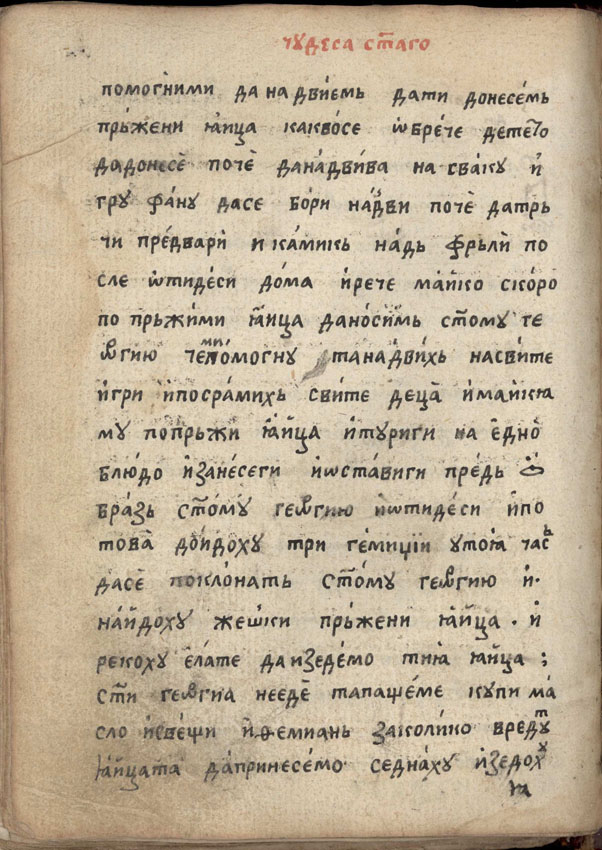 чудеса ст҃аго
помогними да надвіемь дати донесемь
прьжени ꙗица каквосе ѡбрече детето
дадонесе поче данадвива на сваку и
гру фану дасе бори надви поче датрь
чи предвари и камикь надь фрьли по
сле ѡтидеси дома ирече майко скоро
попрьжими ꙗица даносимь ст҃ому ге
ѡргию чемипомогну танадвихь насвите
игри ипосрамихь свите деца имайкꙗ
му попрьжи ꙗйца итуриги на едно
блюдо изанесеги иѡставиги предь ѡ
бразь ст҃ому геѡргию иѡтидеси ипо
това доидоху три гемиџіи утоꙗ часъ
дасе поклонать ст҃ому геѡргию и·
найдоху жешки прьжени ꙗйца · и
рекоху елате да изедемо тиꙗ ꙗйца ;
ст҃и геѡргиа неедѐ тапащеме купи ма
сло исвещи иѳемиань заколико вредут
ꙗйцата дапринесемо седнаху изедоху
на